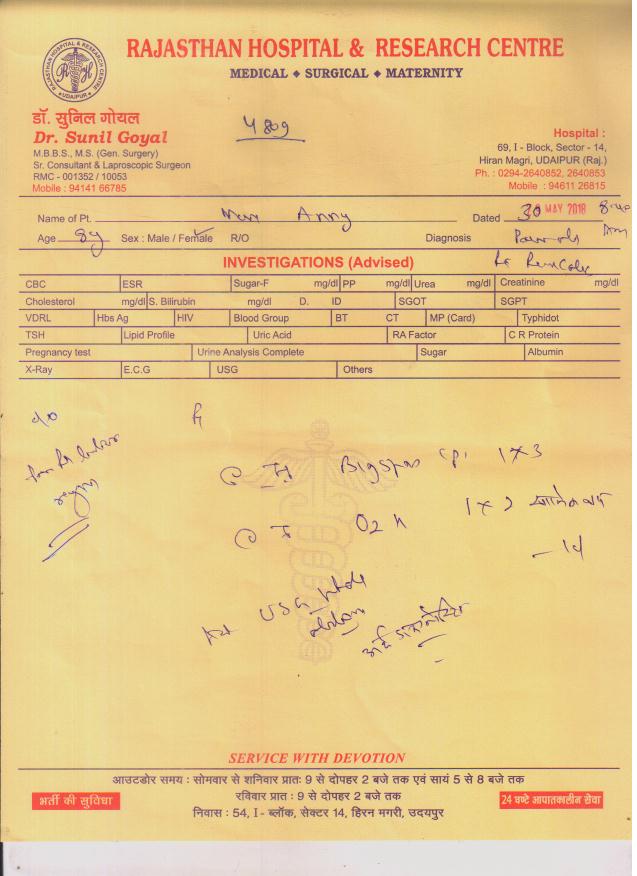 RAJASTHAN HOSPITAL & RESEARCH CENTRE
RAJASTHAN HOSPITAL & RESEARCH CENTRE
UDAIPUR
MEDICAL ◆ SURGICAL ◆ MATERNITY
डॉ. सुनिल गोयल
Dr. Sunil Goyal
M.B.B.S., M.S. (Gen. Surgery)
Sr. Consultant & Laproscopic Surgeon
RMC - 001352 / 10053
Mobile : 94141 66785
4809
Hospital :
69, I - Block, Sector - 14,
Hiran Magri, UDAIPUR (Raj.)
Ph. : 0294-2640852, 2640853
Mobile : 94611 26815
Name of Pt. Anny Dated 30 MAY 2018
Age 8y Sex : Male / Female R/O Diagnosis
Rt Renal Colic
INVESTIGATIONS (Advised)
CBC ESR Sugar-F mg/dl PP mg/dl Urea mg/dl Creatinine mg/dl
Cholesterol mg/dl S. Bilirubin mg/dl D. ID SGOT SGPT
VDRL Hbs Ag HIV Blood Group BT CT MP (Card) Typhidot
TSH Lipid Profile Uric Acid RA Factor C R Protein
Pregnancy test Urine Analysis Complete Sugar Albumin
X-Ray E.C.G USG Others
c/o
Pain Rt lumbar
region
Bigspas 1 x 3
O2 H 1 x 2
USG whole
abdomen
SERVICE WITH DEVOTION
आउटडोर समय : सोमवार से शनिवार प्रातः 9 से दोपहर 2 बजे तक एवं सायं 5 से 8 बजे तक
भर्ती की सुविधा
रविवार प्रातः 9 से दोपहर 2 बजे तक
24 घण्टे आपातकालीन सेवा
निवास : 54, I - ब्लॉक, सेक्टर 14, हिरन मगरी, उदयपुर